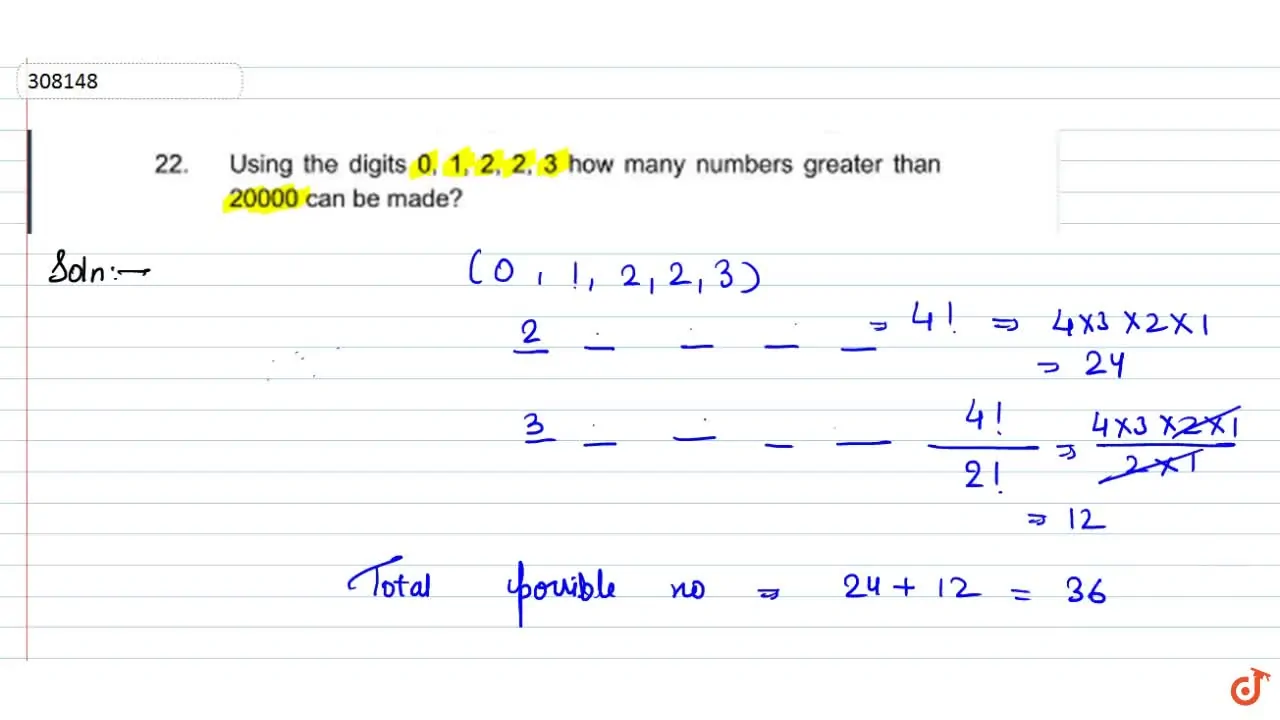 308148
22. Using the digits 0, 1, 2, 2, 3 how many numbers greater than
20000 can be made?
Soln:-
(0, 1, 2, 2, 3)
2 _ _ _ _ = 4! ⇒ 4×3×2×1
⇒ 24
3 _ _ _ _ 4!/2! ⇒ 4×3×2×1/2×1
⇒ 12
Total possible no ⇒ 24 + 12 = 36